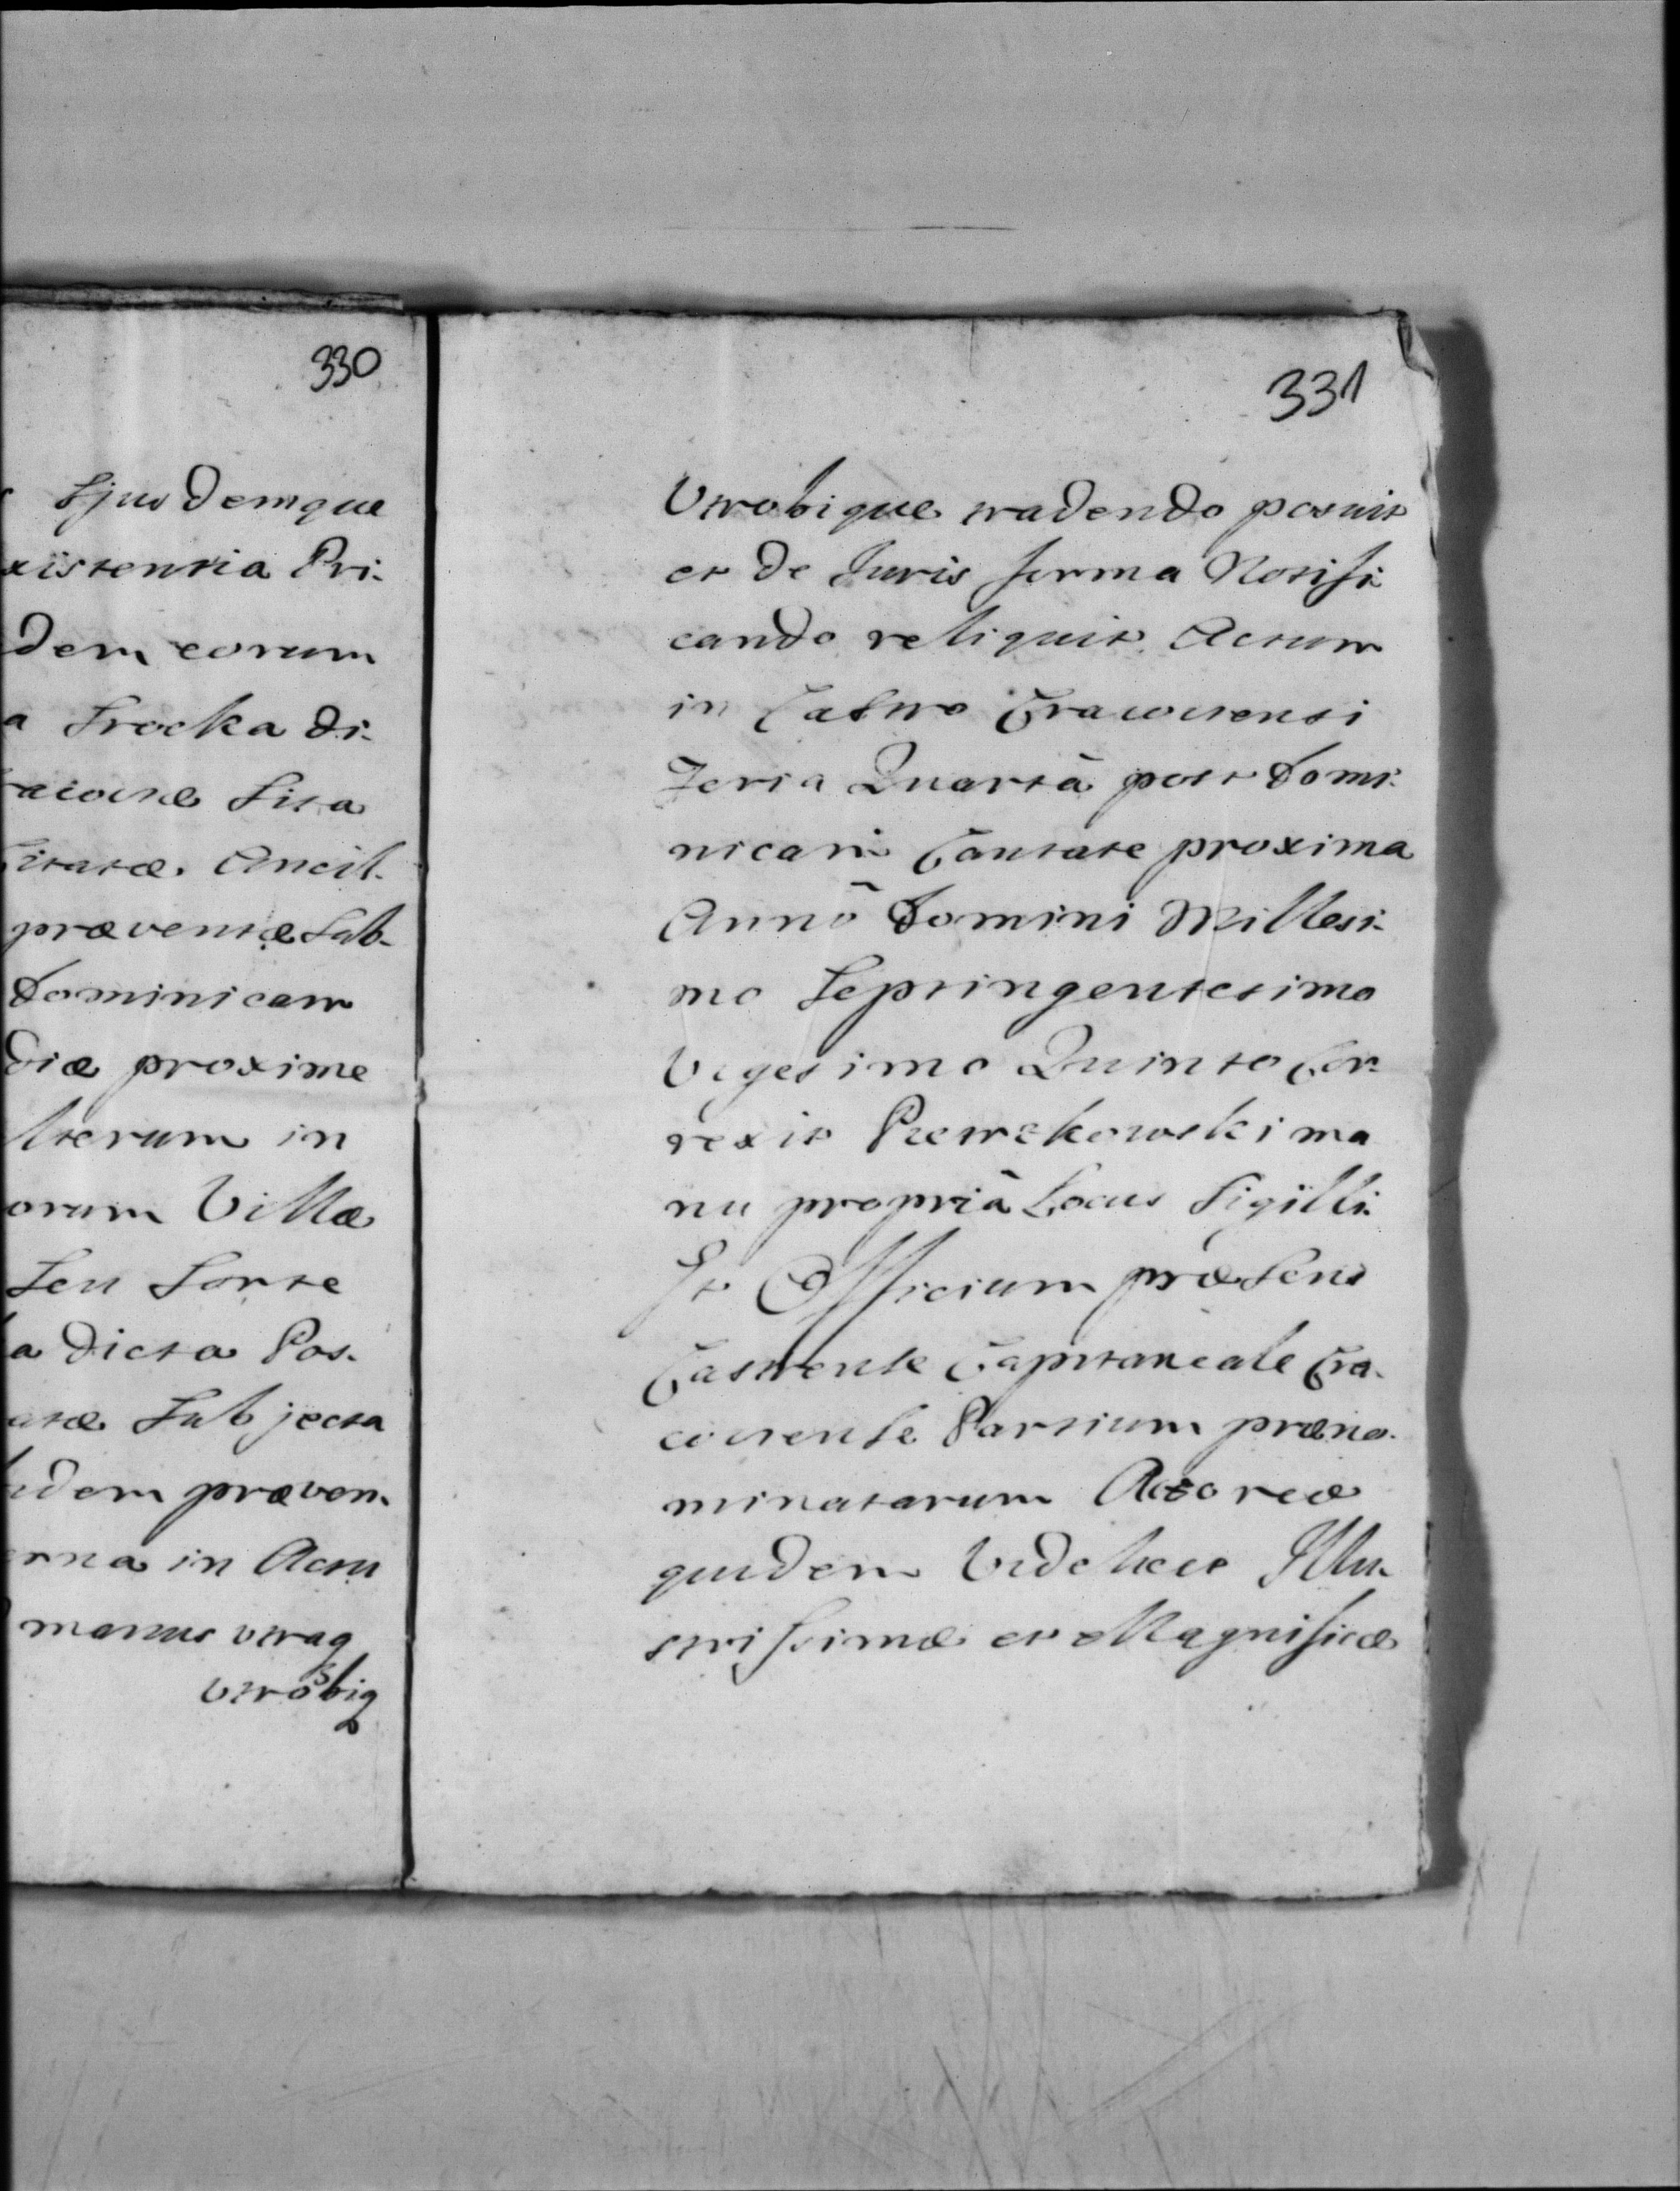 330
Ejusdemque
xistentia Pri-
dem eorum
a Srocka di-
acoviæ Sita
citatæ. Ancil-
præventæ Sab-
Dominicam
diæ proxime
lterum in
orum Villæ
Seu Sorte
a dicta Pos-
atæ Subjecta
idem præven-
erna in Actu
manus utraq
Utrobiq
331
Utrobique tradendo posuit
et de Juris forma Notifi-
cando reliquit. Actum
in Castro Cracoviensi
Feria Quartâ post Domi-
nicam Cantate proxima
Annô Domini Millesi-
mo Septingentesimo
Vigesimo Quinto Cor-
rexit ma
nu propriâ Locus Sigilli.
Et Officium præsens
Castrense Capitaneale Cra-
coviense Partium præno-
minatarum Actoreæ
quidem Videlicet Illu-
strissimæ et Magnificæ